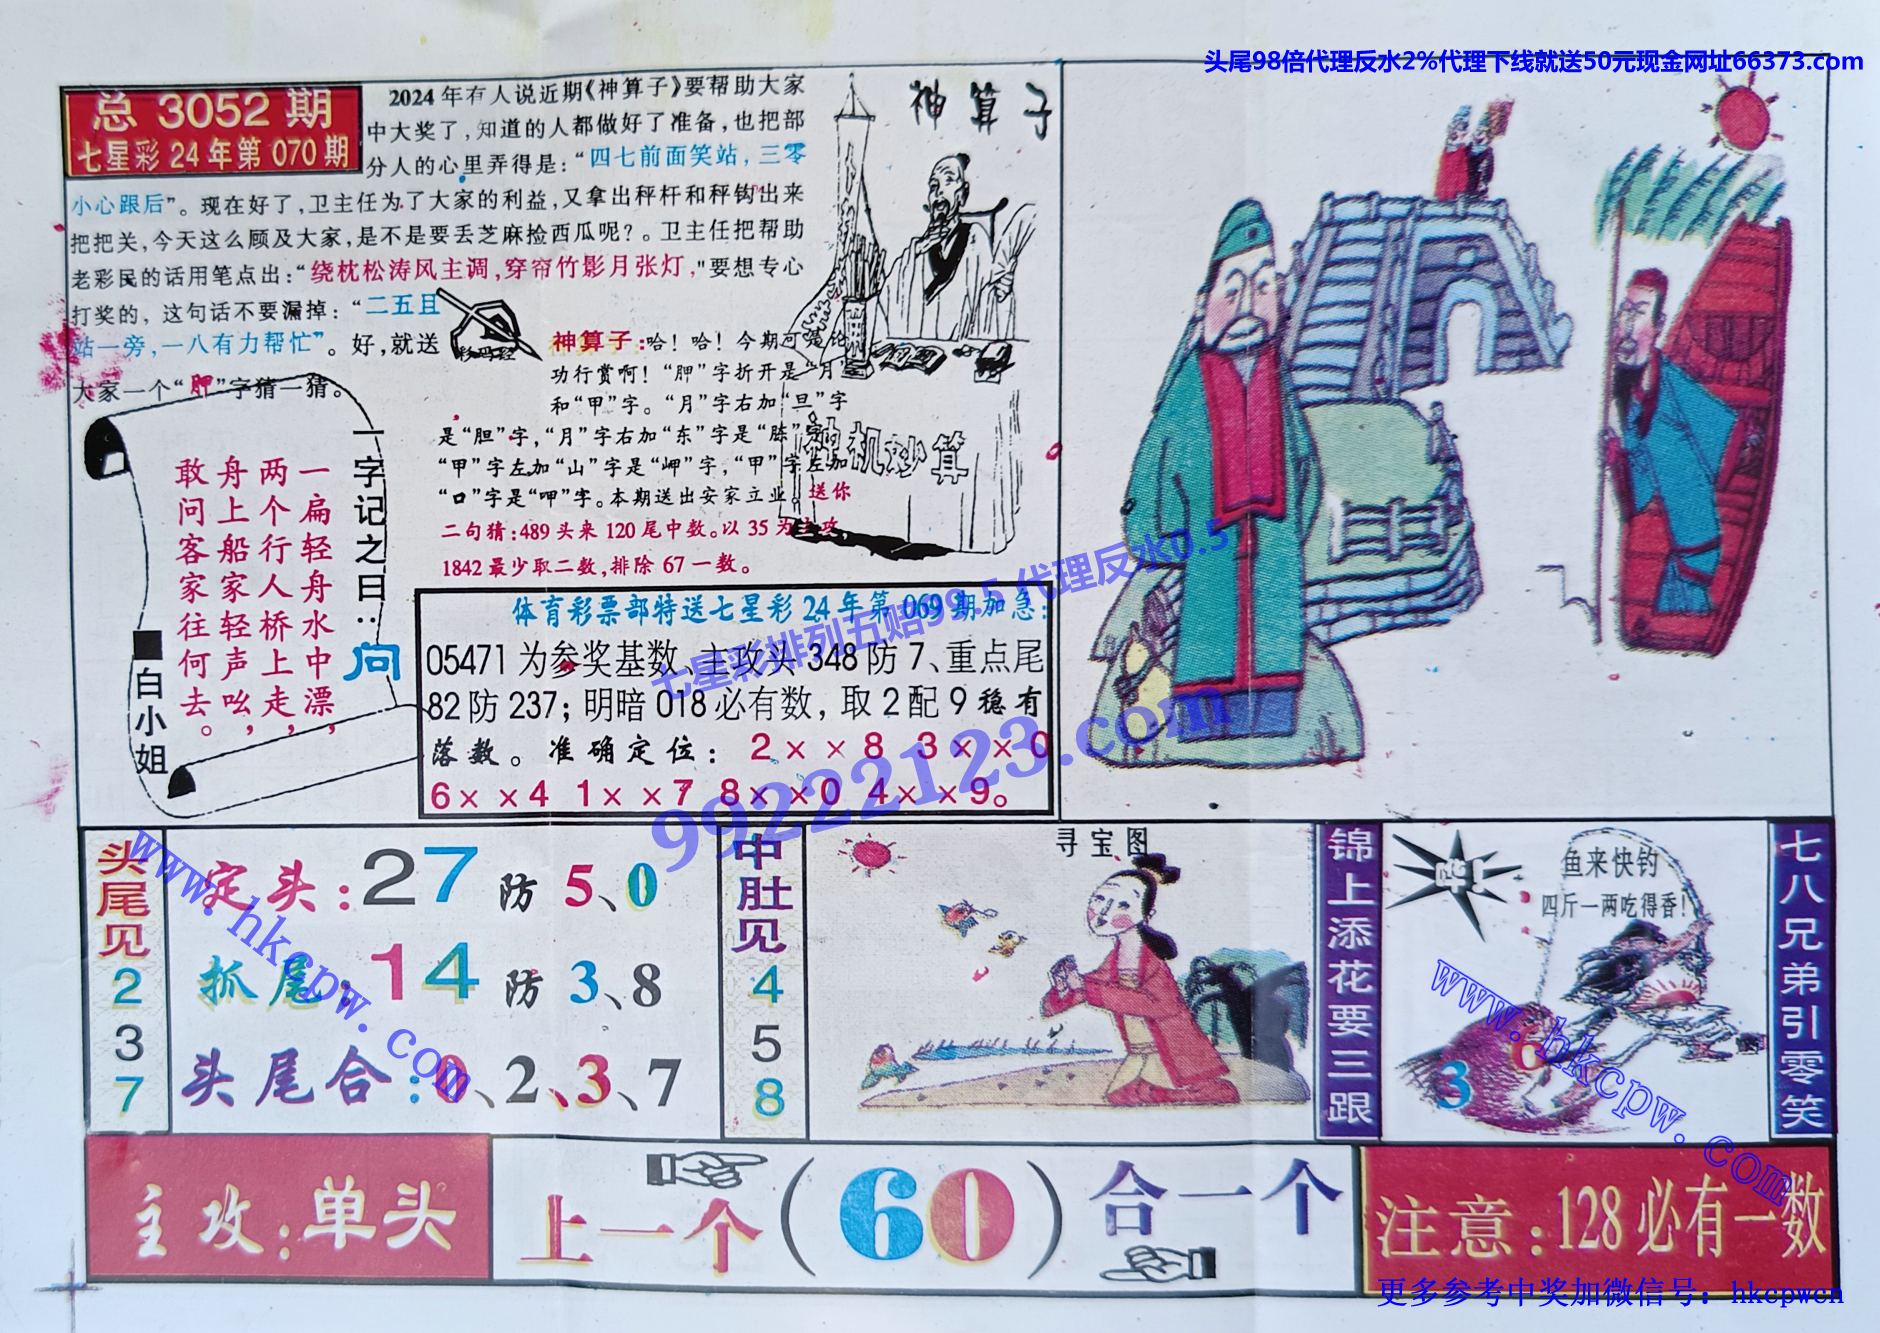 头尾98倍代理反水2%代理下线就送50元现金网址66373.com
总 3052 期
七星彩 24 年第 070 期
2024 年有人说近期《神算子》要帮助大家
中大奖了，知道的人都做好了准备，也把部
分人的心里弄得是：“四七前面笑站，三零
小心跟后”。现在好了，卫主任为了大家的利益，又拿出秤杆和秤钩出来
把把关，今天这么顾及大家，是不是要丢芝麻捡西瓜呢？。卫主任把帮助
老彩民的话用笔点出：“绕枕松涛风主调，穿帘竹影月张灯，"要想专心
打奖的，这句话不要漏掉：“二五且
站一旁，一八有力帮忙”。好，就送
大家一个“胛”字猜一猜。
神算子
神算子：哈！哈！今期可是论
功行赏啊！“胛”字折开是“月”
和“甲”字。“月”字右加“旦”字
是“胆”字，“月”字右加“东”字是“胨”字，
“甲”字左加“山”字是“岬”字，“甲”字左加
“口”字是“呷”字。本期送出安家立业。送你
二句猜：489 头来 120 尾中数。以 35 为主攻，
1842 最少取二数，排除 67 一数。
神机妙算
一字记之曰：问
一扁轻舟水中漂，
两个行人桥上走，
舟上船家轻声吆，
敢问客家往何去。
■白小姐
体育彩票部特送七星彩 24 年第 069 期加急：
05471 为参奖基数、主攻头 348 防 7、重点尾
82 防 237；明暗 018 必有数，取 2 配 9 稳有
落数。准确定位：2××8 3××0
6××4 1××7 8××0 4××9。
七星彩排列五赔99.5 代理反水0.5
99222123.com
头尾见
2
3
7
定头：27 防 5、0
抓尾：14 防 3、8
头尾合：0、2、3、7
中肚见
4
5
8
寻宝图
锦上添花要三跟
鱼来快钓
四斤一两吃得香！
3
6
七八兄弟引零笑
www.hkcpw.com
www.hkcpw.com
主攻：单头
上一个（60）合一个
注意：128 必有一数
更多参考中奖加微信号：hkcpwcn